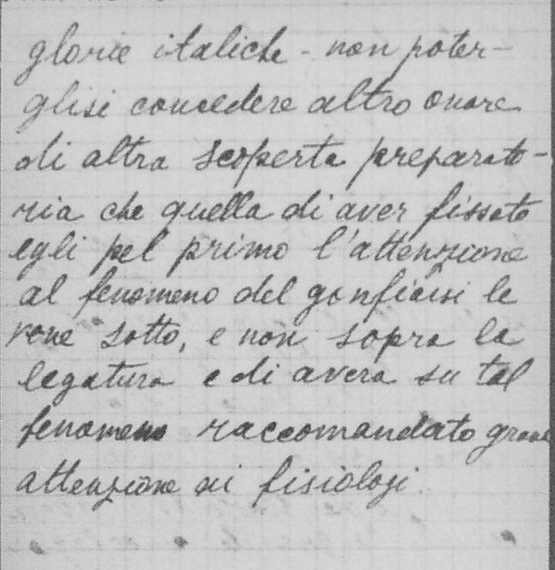 glorie italiche - non poter-
glisi concedere altro onore
di altra scoperta preparato-
ria che quella di aver fissato
egli pel primo l'attenzione
al fenomeno del gonfiarsi le
vene sotto, e non sopra la
legatura e di avera su tal
fenomeno raccomandato grande
attenzione ai fisiologi.